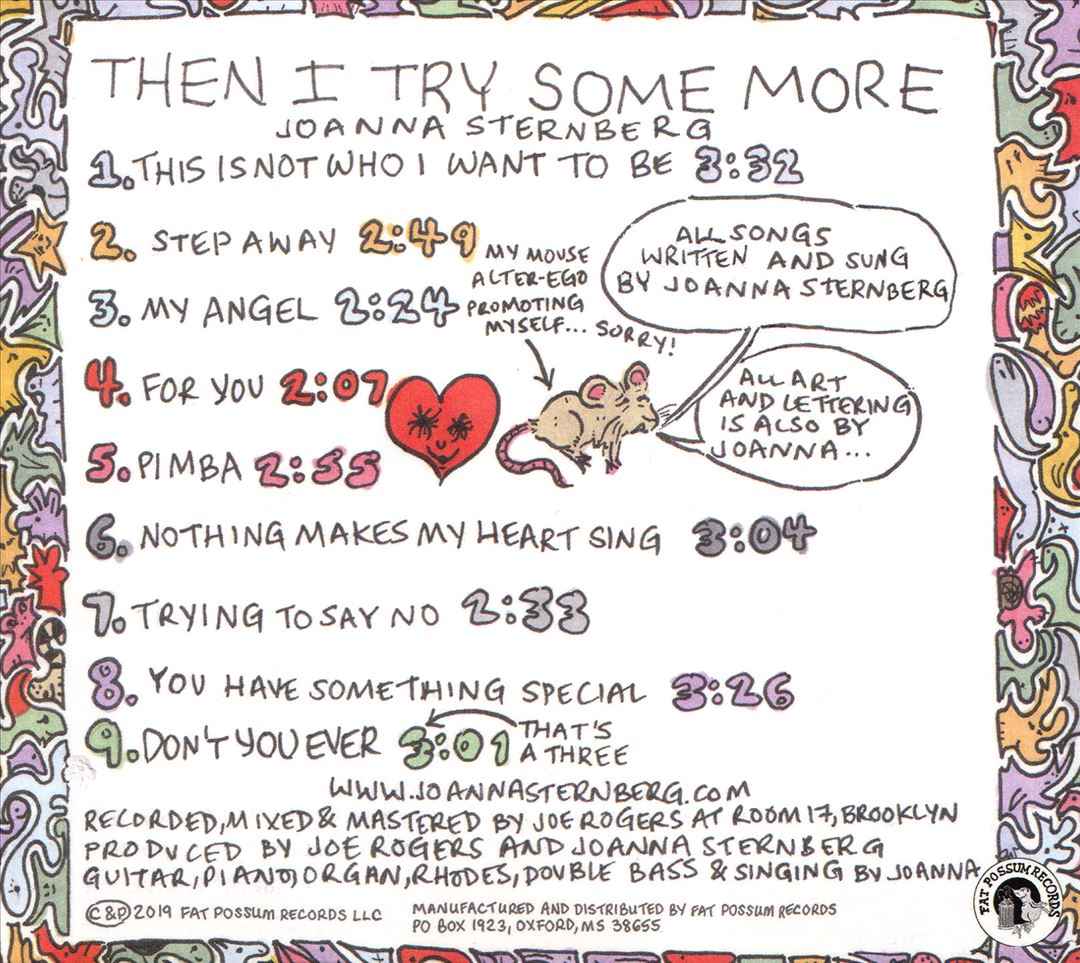 THEN I TRY SOME MORE
JOANNA STERNBERG
1. THIS IS NOT WHO I WANT TO BE 3:32
2. STEP AWAY 2:49
3. MY ANGEL 2:24
MY MOUSE
ALTER-EGO
PROMOTING
MYSELF... SORRY!
ALL SONGS
WRITTEN AND SUNG
BY JOANNA STERNBERG
4. FOR YOU 2:07
ALL ART
AND LETTERING
IS ALSO BY
JOANNA...
5. PIMBA 2:55
6. NOTHING MAKES MY HEART SING 3:04
7. TRYING TO SAY NO 2:33
8. YOU HAVE SOMETHING SPECIAL 3:26
9. DON'T YOU EVER 3:01
THAT'S
A THREE
WWW.JOANNASTERNBERG.COM
RECORDED, MIXED & MASTERED BY JOE ROGERS AT ROOM 17, BROOKLYN
PRODUCED BY JOE ROGERS AND JOANNA STERNBERG
GUITAR, PIANO, ORGAN, RHODES, DOUBLE BASS & SINGING BY JOANNA
C & P 2019 FAT POSSUM RECORDS LLC
MANUFACTURED AND DISTRIBUTED BY FAT POSSUM RECORDS
PO BOX 1923, OXFORD, MS 38655
FAT POSSUM RECORDS